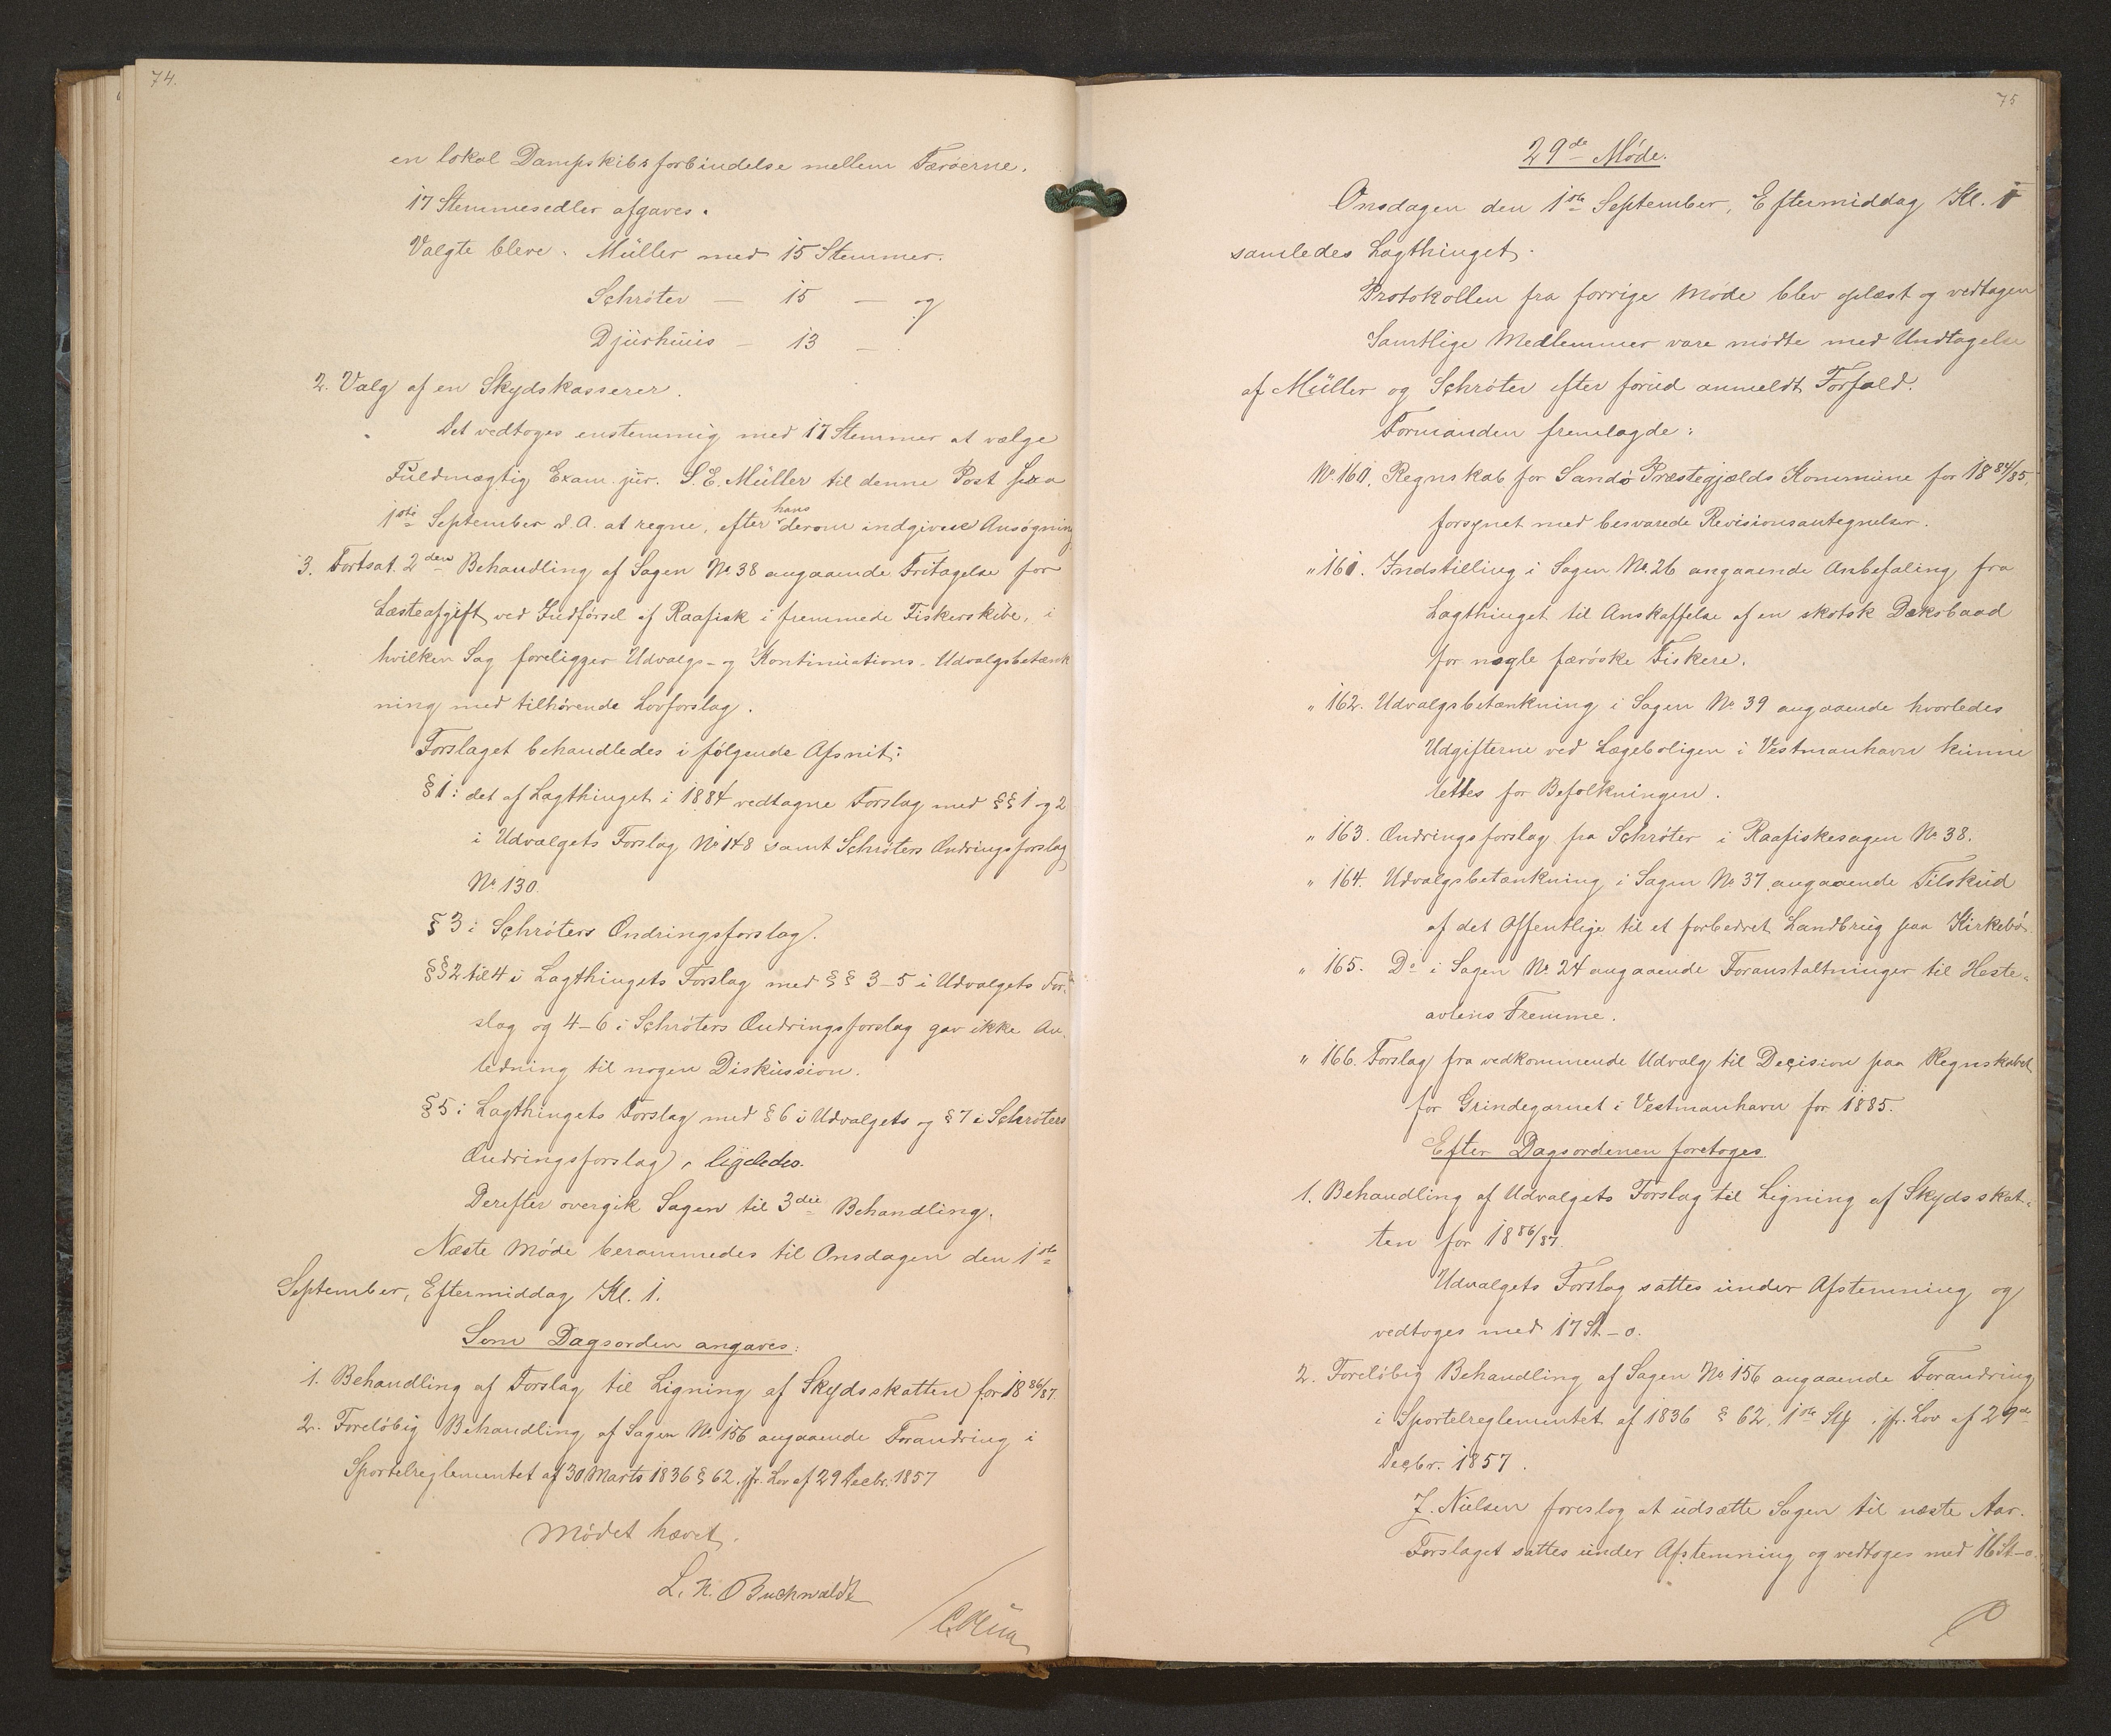 74.
en lokal Dampskibsforbindelse mellem Færöerne.
17 Stemmesedler afgaves.
Valgte bleve: Müller med 15 Stemmer.
Schröter — 15 — og
Djurhuus — 13 —
2. Valg af en Skydskasserer.
Det vedtoges enstemmig med 17 Stemmer at vælge
Fuldmægtig Exam. jur. S. E. Müller til denne Post fra
1ste September d. A. at regne, efter hans derom indgivne Ansøgning
3. Fortsat 2den Behandling af Sagen No. 38 angaaende Fritagelse for
Læsteafgift ved Indförsel af Raafisk i fremmede Fiskerskibe, i
hvilken Sag foreligger Udvalgs- og Kontinuations-Udvalgsbetænk
ning med tilhörende Lovforslag.
Forslaget behandledes i fölgende Afsnit:
§ 1: det af Lagthinget i 1884 vedtagne Forslag med §§ 1 og 2
i Udvalgets Forslag No 148 samt Schröters Ændringsforslag
No. 130.
§ 3 i Schröters Ændringsforslag.
§§ 2 til 4 i Lagthingets Forslag med §§ 3-5 i Udvalgets For-
slag og 4-6 i Schröters Ændringsforslag gav ikke An-
ledning til nogen Diskussion.
§ 5 i Lagthingets Forslag med § 6 i Udvalgets og § 7 i Schröters
Ændringsforslag, ligeledes.
Derefter overgik Sagen til 3die Behandling.
Næste Möde berammedes til Onsdagen den 1ste
September, Eftermiddag Kl. 1.
Som Dagsorden angaves:
1. Behandling af Forslag til Ligning af Skydsskatten for 1886/87.
2. Forelöbig Behandling af Sagen No. 156 angaaende Forandring i
Sportelreglementet af 30 Marts 1836 § 62, jfr. Lov af 29 Decbr. 1857
Mödet hævet.
L. N. Buchwaldt
75
29de Möde.
Onsdagen den 1ste September, Eftermiddag Kl. 1
samledes Lagthinget.
Protokollen fra forrige Möde blev oplæst og vedtagen
Samtlige Medlemmer vare mödte med Undtagelse
af Müller og Schröter efter forud anmeldt Forfald.
Formanden fremlagde:
No. 160. Regnskab for Sandö Præstegjælds Kommune for 1884/85,
forsynet med besvarede Revisionsantegnelser.
" 161. Indstilling i Sagen No. 26 angaaende Anbefaling fra
Lagthinget til Anskaffelse af en skotsk Dæksbaad
for nogle færöske Fiskere.
" 162. Udvalgsbetænkning i Sagen No. 39 angaaende hvorledes
Udgifterne ved Lægeboligen i Vestmanhavn kunne
lettes for Befolkningen.
" 163. Ændringsforslag fra Schröter i Raafiskesagen No. 38.
" 164. Udvalgsbetænkning i Sagen No. 37 angaaende Tilskud
af det Offentlige til et forbedret Landbrug paa Kirkebö.
" 165. Do i Sagen No. 24 angaaende Foranstaltninger til Heste-
avlens Fremme.
" 166. Forslag fra vedkommende Udvalg til Decision paa Regnskabet
for Grindegarnet i Vestmanhavn for 1885.
Efter Dagsordenen foretoges.
1. Behandling af Udvalgets Forslag til Ligning af Skydsskat-
ten for 1886/87.
Udvalgets Forslag sattes under Afstemning og
vedtoges med 17 St - 0.
2. Forelöbig Behandling af Sagen No 156 angaaende Forandring
i Sportelreglementet af 1836 § 62, 1ste Stk, jfr. Lov af 29de
Decbr. 1857.
J. Nielsen foreslog at udsætte Sagen til næste Aar.
Forslaget sattes under Afstemning og vedtoges med 16 St - 0.